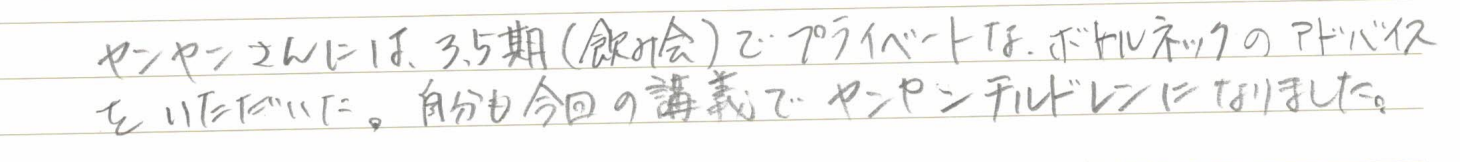 ヤンヤンさんには、3.5期(飲み会)でプライベートな、ボトルネックのアドバイス
をいただいた。自分も今回の講義でヤンヤンチルドレンになりました。